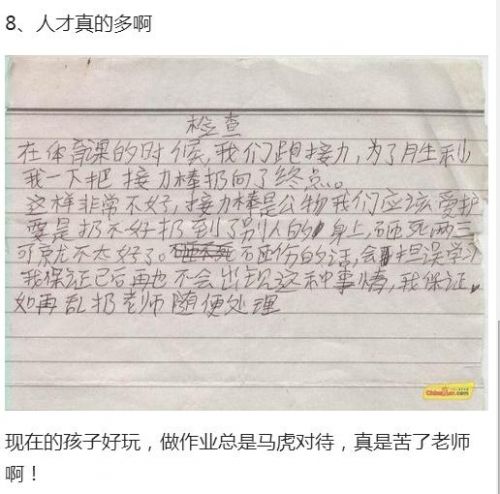 8、人才真的多啊
检查
在体育课的时候,我们跑接力,为了月生利
我一下把接力棒扔向了终点。。
这样非常不好,接力棒是公物我们应该爱护
要是扔不好扔到了别人的身上,砸死两三
可就不太好了。砸伤的话,会担误学习
我保证已后再也不会出现这种事情,我保证
如再乱扔老师随便处理
现在的孩子好玩，做作业总是马虎对待，真是苦了老师
啊！